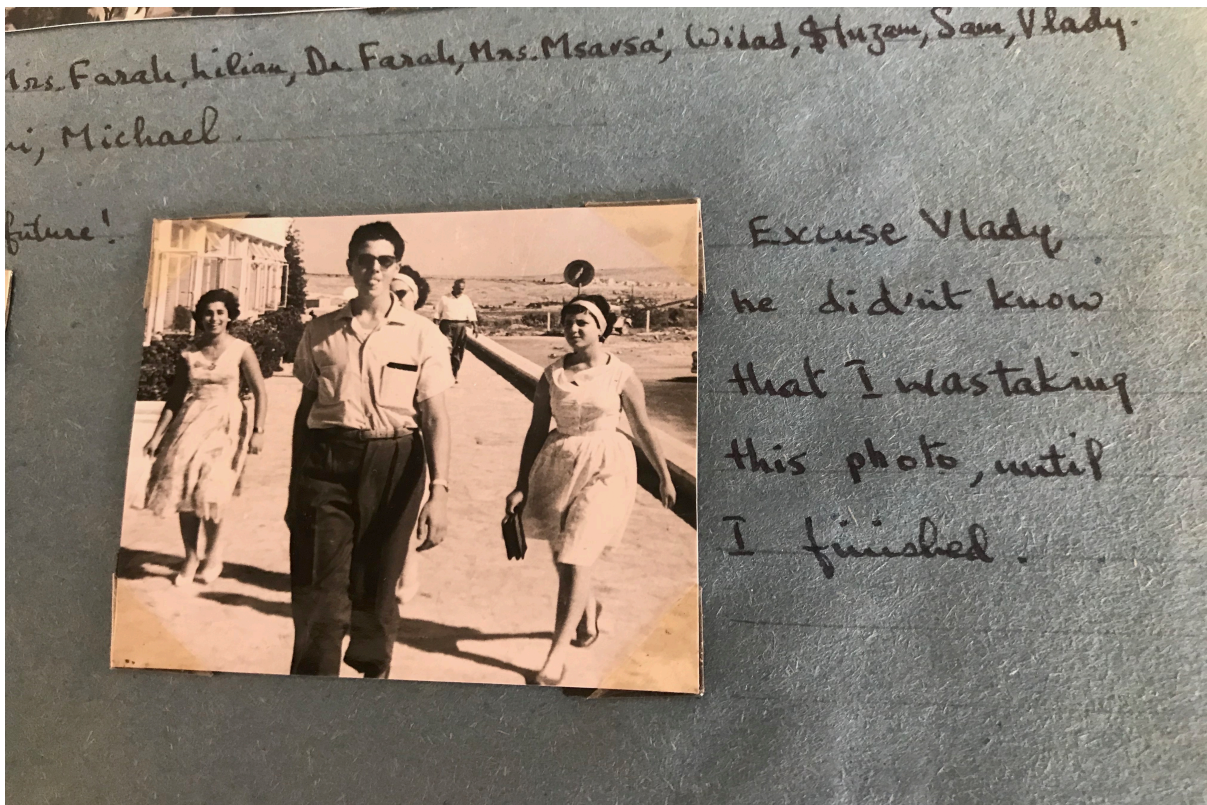 Mrs. Farah, Lilian, Dr. Farah, Mrs. Msarsa', Widad, Huzam, Sam, Vlady.
Michael.
future!
Excuse Vlady,
he did'nt know
that I was taking
this photo, until
I finished.